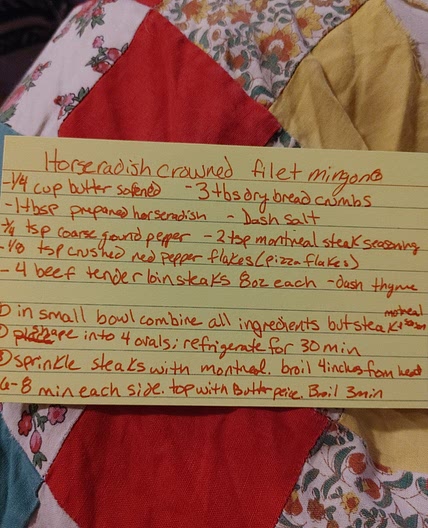 Horseradish crowned filet mingons
-1/4 cup butter sofened -3 tbs dry bread crumbs
-1 tbsp prepared horseradish - Dash salt
-1/4 tsp coarse gound peper - 2 tsp montreal steak seasoning
-1/8 tsp crushed red pepper flakes (pizza flakes)
- 4 beef tenderloin steaks 8oz each -dash thyme
① in small bowl combine all ingredients but steak + montreal
② shape into 4 ovals; refrigerate for 30 min
③ sprinkle steaks with montreal. broil 4 inches from heat
6-8 min each side. top with Butter peice. Broil 3 min